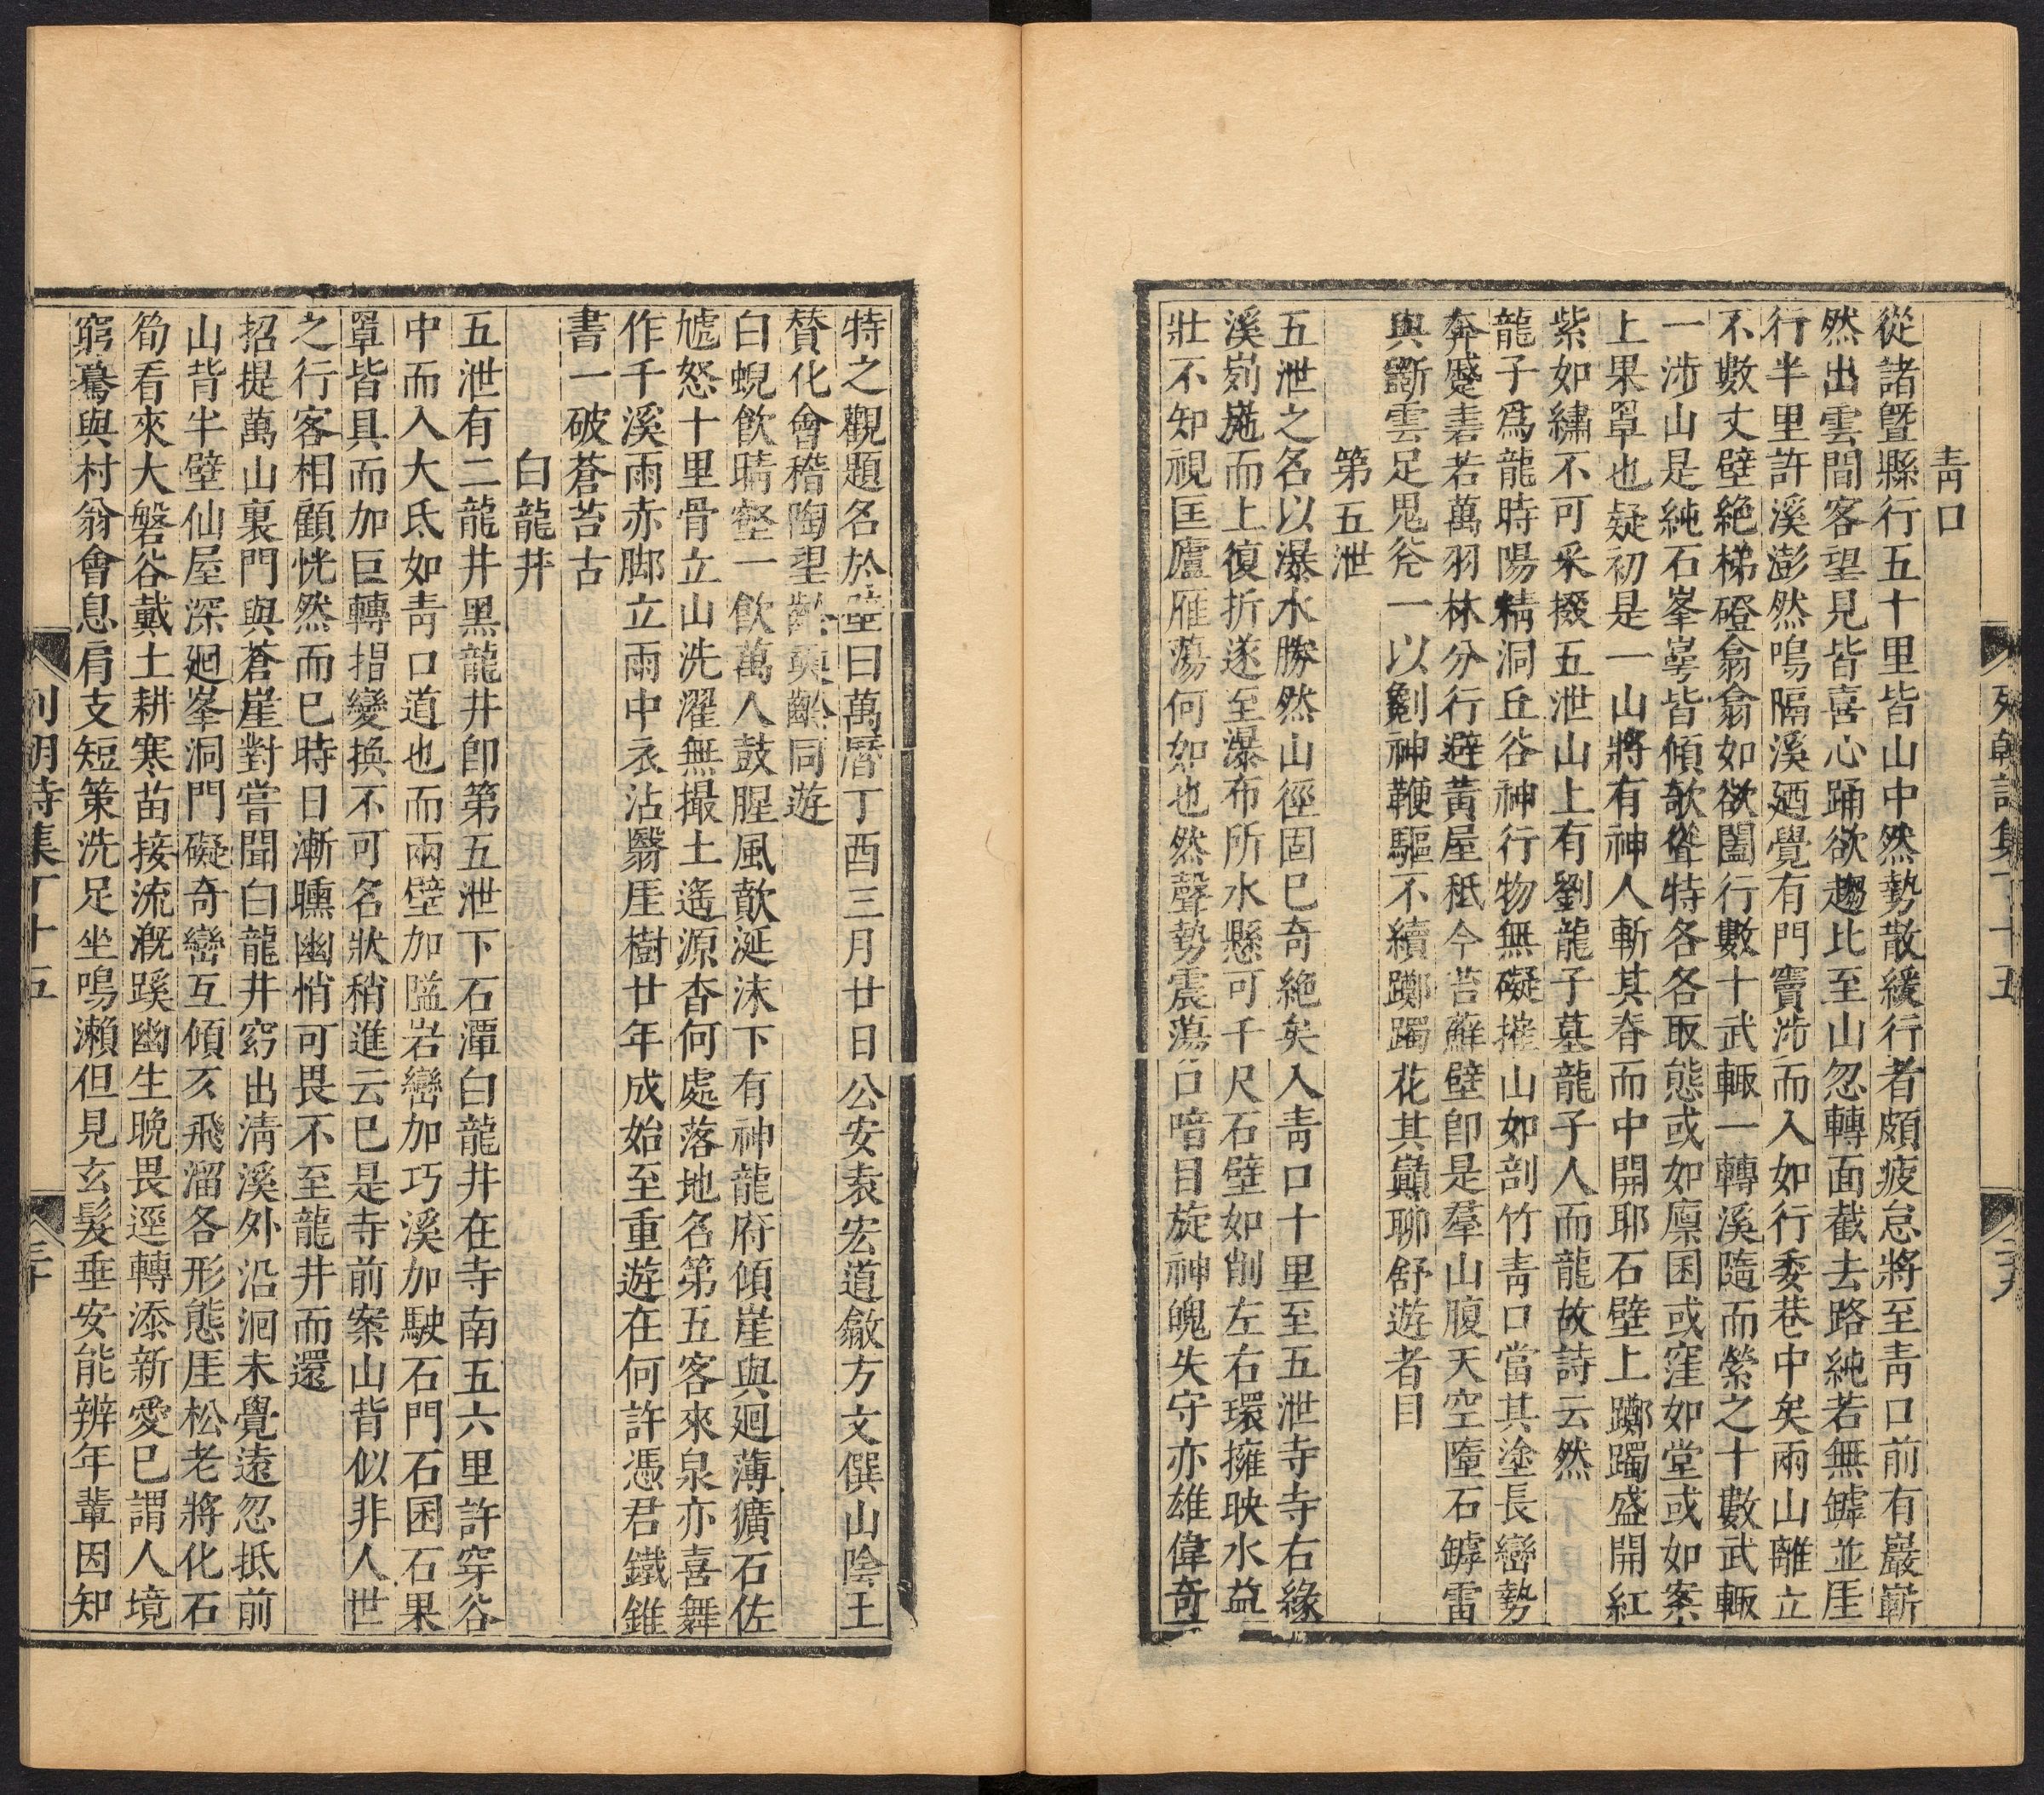 青口
從諸暨縣行五十里皆山中然勢散緩行者頗疲怠將至青口前有巖嶄
然出雲間客望見皆喜心踊欲趨比至山忽轉面截去路純若無罅並厓
行半里許溪澎然鳴隔溪廼覺有門竇沛而入如行委巷中矣兩山離立
不數丈壁絶梯磴翕翕如欲闔行數十武輙一轉溪隨而縈之十數武輙
一涉山是純石峯崿皆傾欹聳特各各取態或如廪囷或窪如堂或如案
上果罩也疑初是一山將有神人斬其脊而中開耶石壁上躑躅盛開紅
紫如繡不可采掇五泄山上有劉龍子墓龍子人而龍故詩云然
龍子爲龍時陽精洞丘谷神行物無礙摧山如剖竹青口當其塗長巒勢
奔蹙砉若萬羽林分行避黃屋秖今苔蘚壁卽是羣山腹天空墮石罅雷
與斷雲足鬼斧一以剜神鞭驅不續躑躅花其巔聊舒遊者目
第五泄
五泄之名以瀑水勝然山徑固已奇絶矣入青口十里至五泄寺寺右緣
溪峛崺而上復折遂至瀑布所水懸可千尺石壁如削左右環擁映水益
壯不知視匡廬雁蕩何如也然聲勢震蕩口喑目旋神魄失守亦雄偉奇
列朝詩集丁十五
二十九
特之觀題名於壁曰萬曆丁酉三月廿日公安袁宏道歙方文僎山陰王
賛化會稽陶望齡奭齡同遊
白蜺飲晴壑一飲萬人鼓腥風歕涎沫下有神龍府傾崖與廻薄獷石佐
虓怒十里骨立山洗濯無撮土遙源杳何處落地名第五客來泉亦喜舞
作千溪雨赤脚立雨中衣沾翳厓樹廿年成始至重遊在何許憑君鐵錐
書一破蒼苔古
白龍井
五泄有二龍井黑龍井卽第五泄下石潭白龍井在寺南五六里許穿谷
中而入大氐如青口道也而兩壁加隘岩巒加巧溪加駛石門石囷石果
罩皆具而加巨轉揩變換不可名狀稍進云已是寺前案山背似非人世
之行客相顧恍然而已時日漸曛幽悄可畏不至龍井而還
招提萬山裏門與蒼崖對嘗聞白龍井窈出淸溪外沿洄未覺遠忽抵前
山背半壁仙屋深廻峯洞門礙奇巒互傾亥飛溜各形態厓松老將化石
筍看來大磐谷戴土耕寒苗接流漑蹊幽生晚畏逕轉添新愛已謂人境
窮驀與村翁會息肩支短策洗足坐鳴瀨但見玄髮垂安能辨年輩因知
列朝詩集丁十五
三十